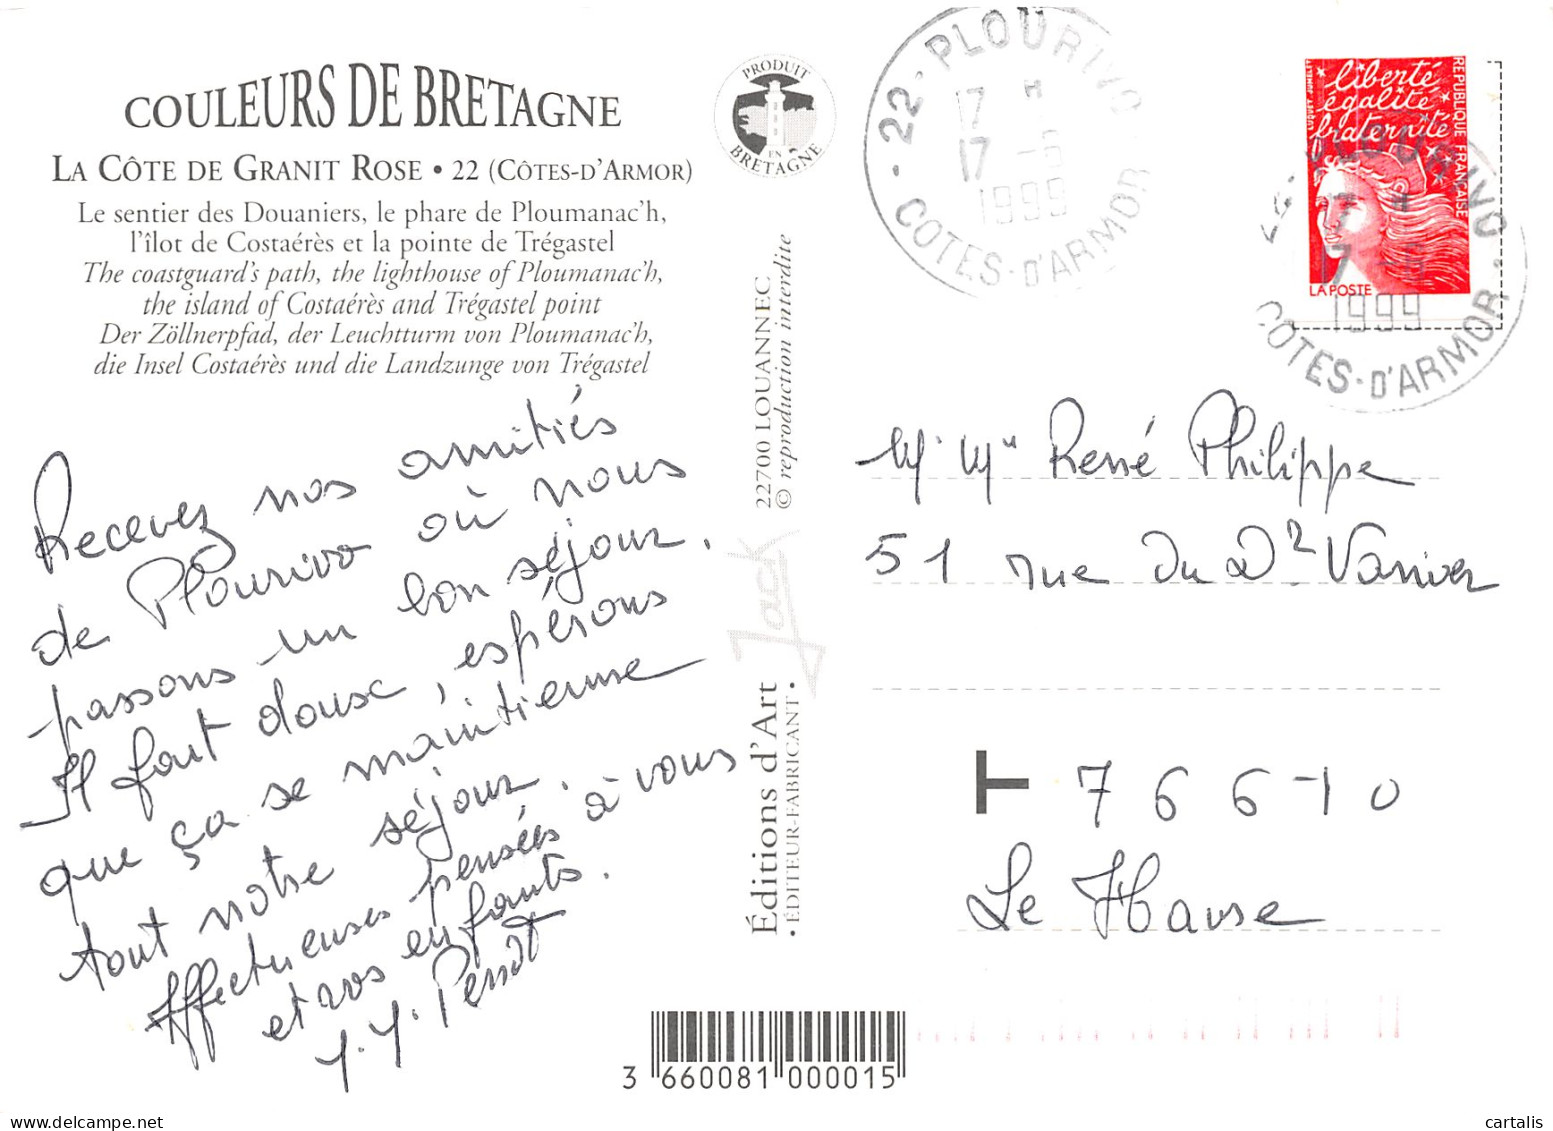 COULEURS DE BRETAGNE
LA CÔTE DE GRANIT ROSE • 22 (CÔTES-D'ARMOR)
Le sentier des Douaniers, le phare de Ploumanac'h,
l'îlot de Costaérès et la pointe de Trégastel
The coastguard's path, the lighthouse of Ploumanac'h,
the island of Costaérès and Trégastel point
Der Zöllnerpfad, der Leuchtturm von Ploumanac'h,
die Insel Costaérès und die Landzunge von Trégastel
PRODUIT
EN
BRETAGNE
22 - PLOURIVO
17 H
17 -6
1999
COTES-D'ARMOR
liberté
égalité
fraternité
RÉPUBLIQUE FRANÇAISE
LA POSTE
PLOURIVO
17 H
17 -6
1999
COTES-D'ARMOR
Recevez nos amitiés
de Plourivo où nous
passons un bon séjour.
Il fait douse, espérons
que ça se maintienne
tout notre séjour.
Affectueuses pensées à vous
et vos enfants.
Y. Y. Perrot
22700 LOUANNEC
© reproduction interdite
Jack
Éditions d'Art
• ÉDITEUR-FABRICANT •
Mr Me René Philippe
51 rue du Dr Vanier
T 76610
Le Havse
3 660081 000015
cartalis